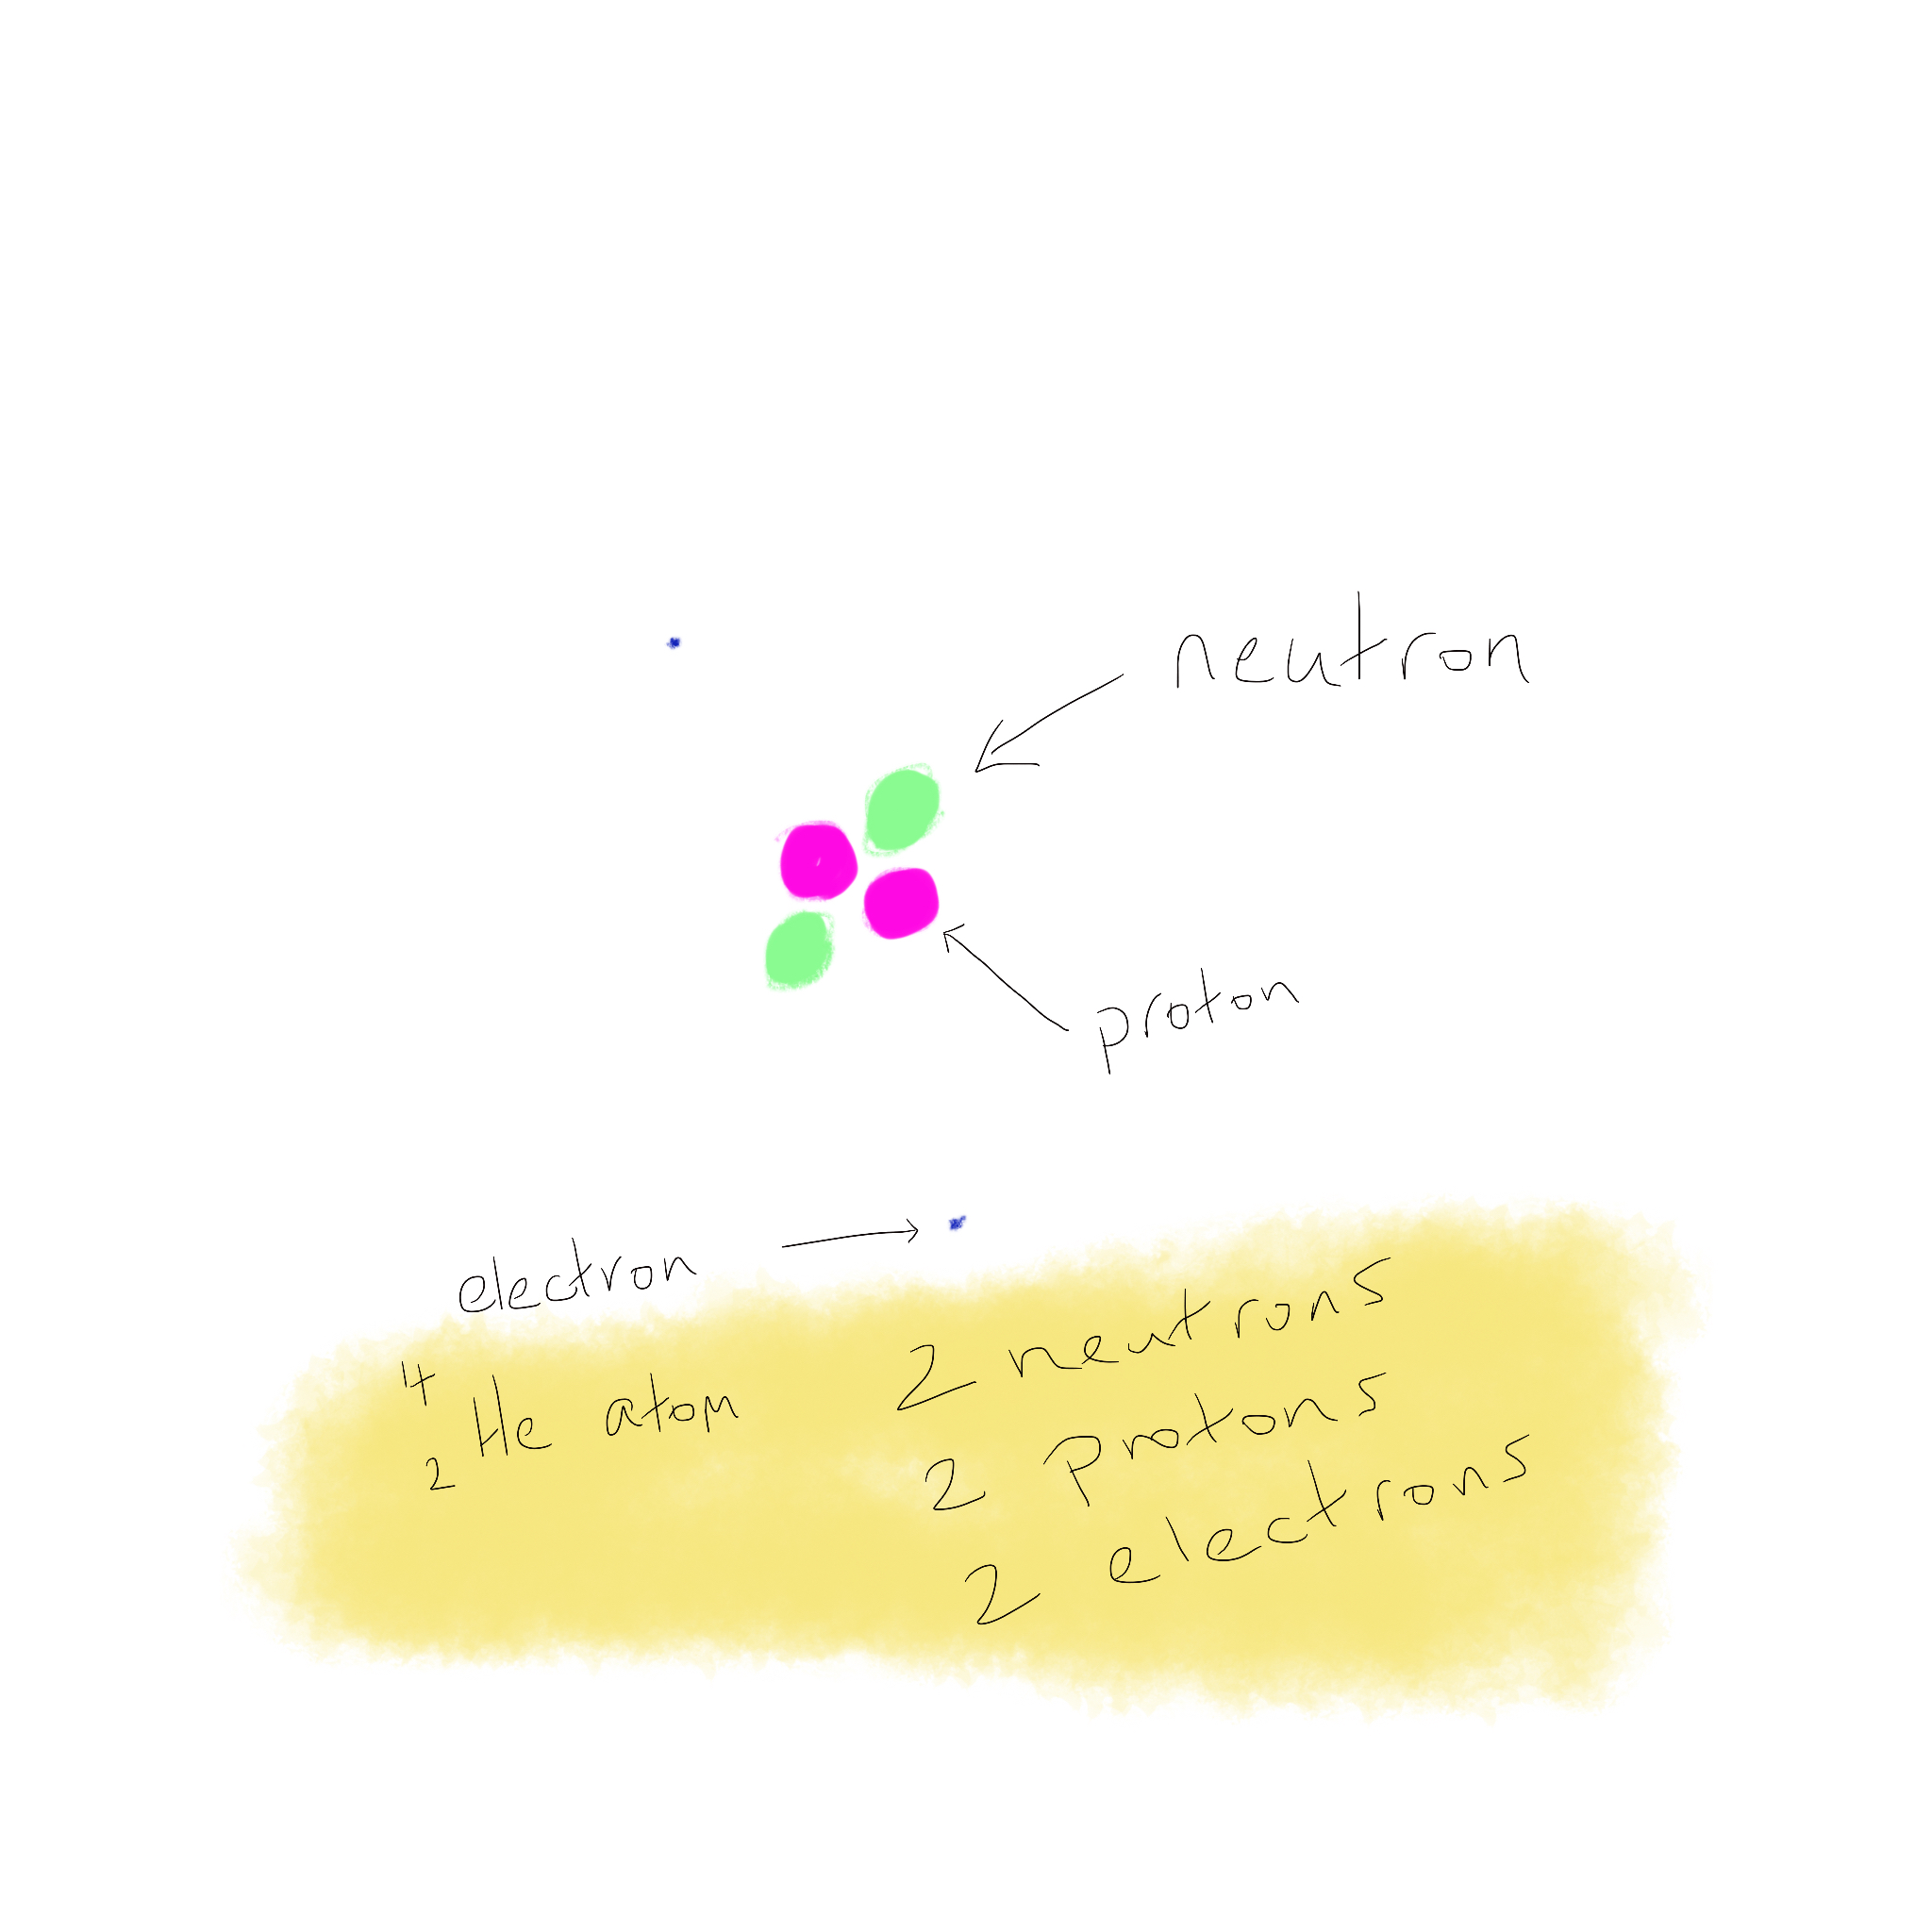 neutron
proton
electron
4
2 He atom
2 neutrons
2 Protons
2 electrons